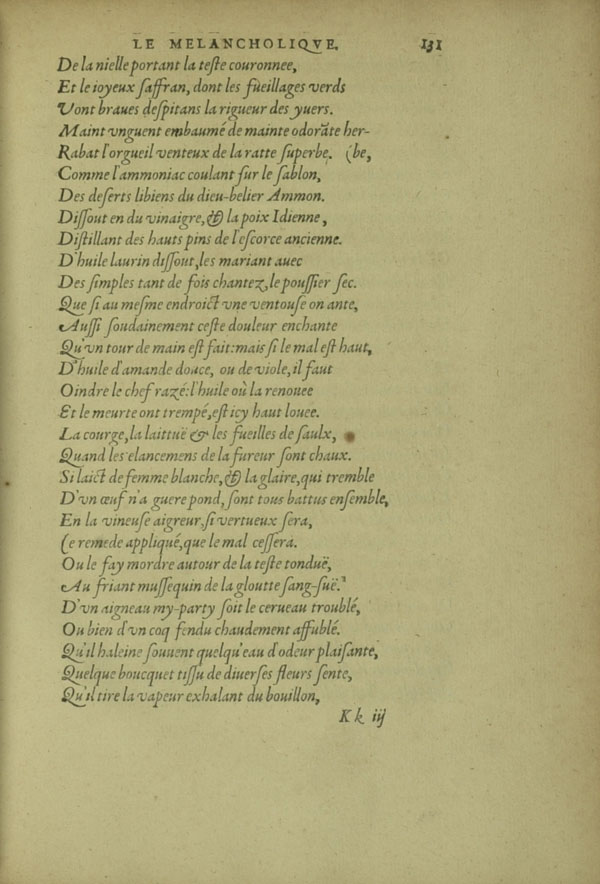 LE MELANCHOLIQVE. 131
De la nielle portant la teſte couronnee,
Et le ioyeux ſaffran, dont les fueillages verds
Vont braues deſpitans la rigueur des yuers.
Maint vnguent embaumé de mainte odorãte her-
Rabat l'orgueil venteux de la ratte ſuperbe. (be,
Comme l'ammoniac coulant ſur le ſablon,
Des deſerts libiens du dieu-belier Ammon.
Diſſout en du vinaigre, & la poix Idienne,
Diſtillant des hauts pins de l'eſcorce ancienne.
D'huile laurin diſſout, les mariant auec
Des ſimples tant de fois chantez, le pouſſier ſec.
Que ſi au meſme endroict vne ventouſe on ante,
Auſſi ſoudainement ceſte douleur enchante
Qu'vn tour de main eſt fait: mais ſi le mal eſt haut,
D'huile d'amande douce, ou de viole, il faut
Oindre le chef razé: l'huile où la renouee
Et le meurte ont trempé, eſt icy haut louee.
La courge, la laittuë & les fueilles de ſaulx,
Quand les elancemens de la fureur ſont chaux.
Si laict de femme blanche, & la glaire, qui tremble
D'vn œuf n'a guere pond, ſont tous battus enſemble,
En la vineuſe aigreur, ſi vertueux ſera,
Ce remede appliqué, que le mal ceſſera.
Ou le fay mordre autour de la teſte tonduë,
Au friant muſſequin de la gloutte ſang-ſuë.
D'vn aigneau my-party ſoit le cerueau troublé,
Ou bien d'vn coq fendu chaudement affublé.
Qu'il haleine ſouuent quelqu'eau d'odeur plaiſante,
Quelque boucquet tiſſu de diuerſes fleurs ſente,
Qu'il tire la vapeur exhalant du bouillon,
K k iij